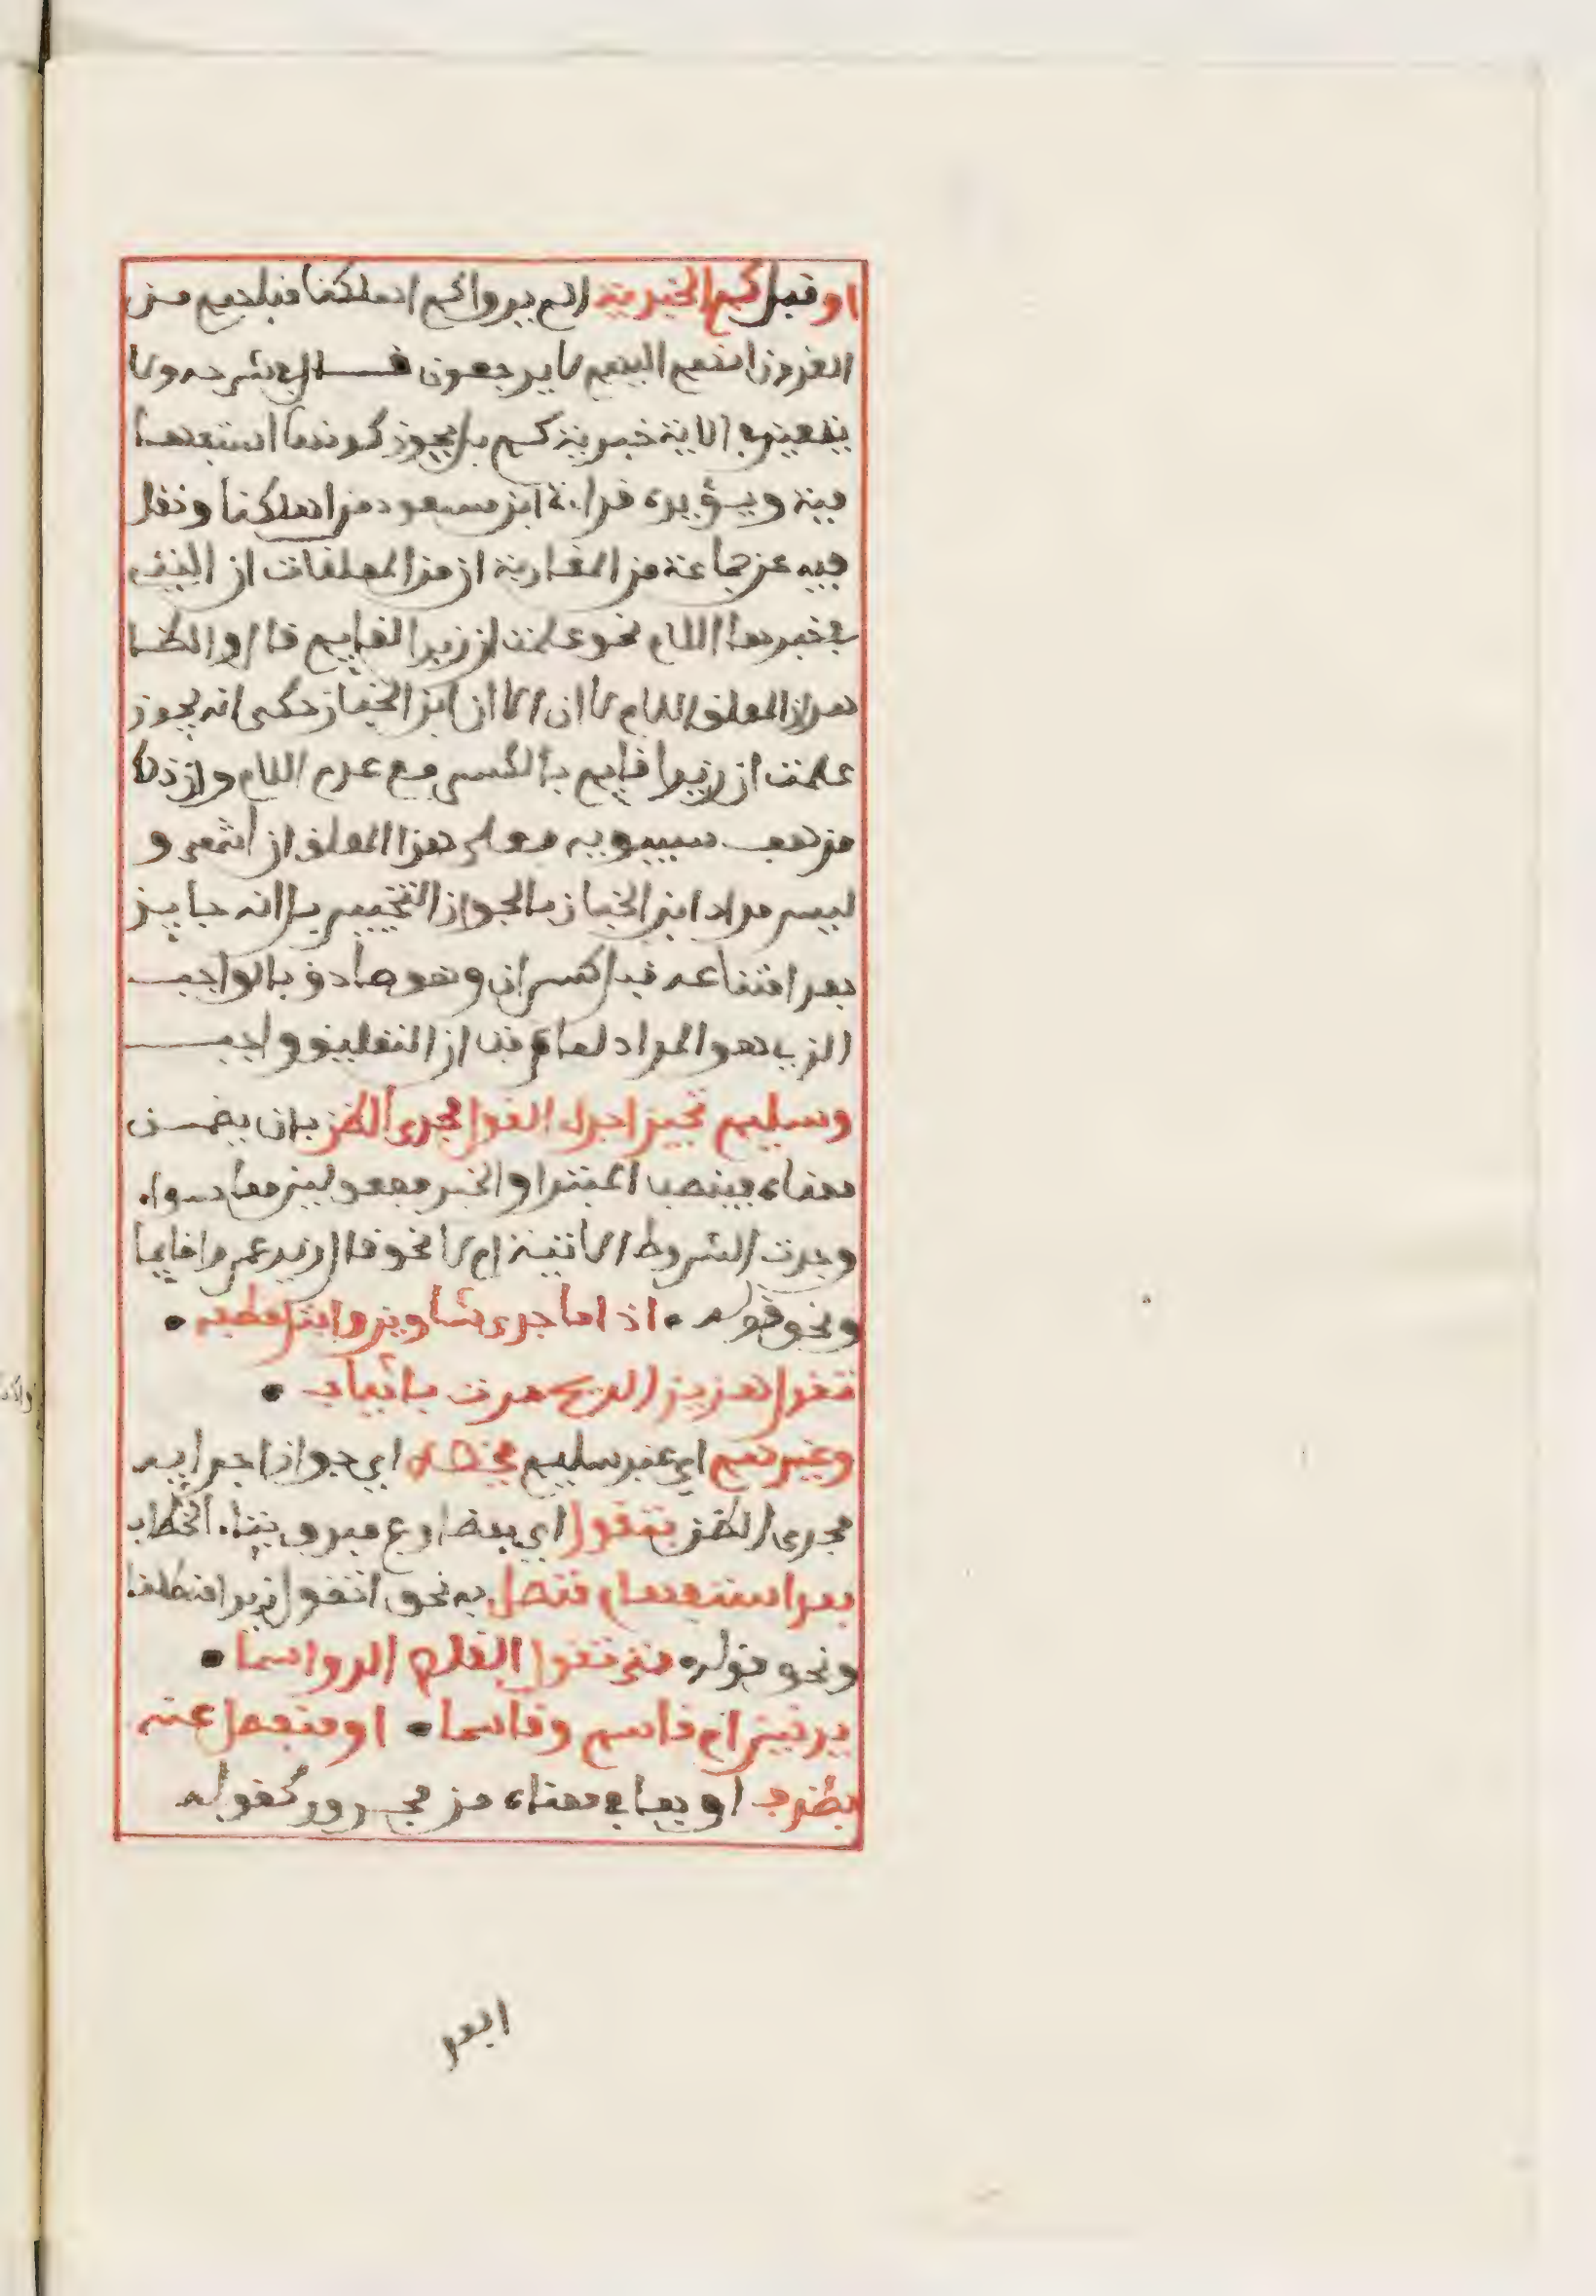 او قبل كم الخبرية الم يروا كم اهلكنا قبلهم من
القرون انهم اليهم لا يرجعون قال في شرحه ولا
يتعين في الاية خبرية كم بل يجوز كونها استفها
مية ويؤيده قراءة ابن مسعود من اهلكنا ونقل
فيه عن جماعة من المغاربة ان من المعلقات ان التي
في خبرها اللام نحو علمت ان زيدا لقايم قال والظا
هر ان المعلق اللام لا ان الا ان ابن الخباز حكى انه يجوز
علمت ان زيدا قايم بالكسر مع عدم اللام وان ذلك
مذهب سيبويه فعلى هذا المعلق ان انتهى و
ليس مراد ابن الخباز بالجواز التخيير بل انه جايز
بعد امتناعه قبل كسر ان وهو صادق بالواجب
الذي هو المراد لما عرفت ان التعليق واجب
وسليم تجيز اجراء القول مجرى الظن بان يضمن
معناه فينصب المبتدا والخبر مفعولين معا سواء
وجدت الشروط الاتية ام لا نحو قال زيد عمرا قايما
ونحو قوله • اذا ما جرى شاوين وابتل عطفه •
تقول هزيز الريح مرت باثياب •
وغيرهم اي غير سليم يخصه اي جواز اجرايه
مجرى الظن بتقول اي بمضارع مبدوء بتاء الخطاب
بعد استفهام متصل به نحو اتقول زيدا منطلقا
ونحو قوله متى تقول القلص الرواسما •
يدنين ام قاسم وقاسما • او منفصل عنه
بظرف او بما في معناه من مجرور كقوله
ابعد